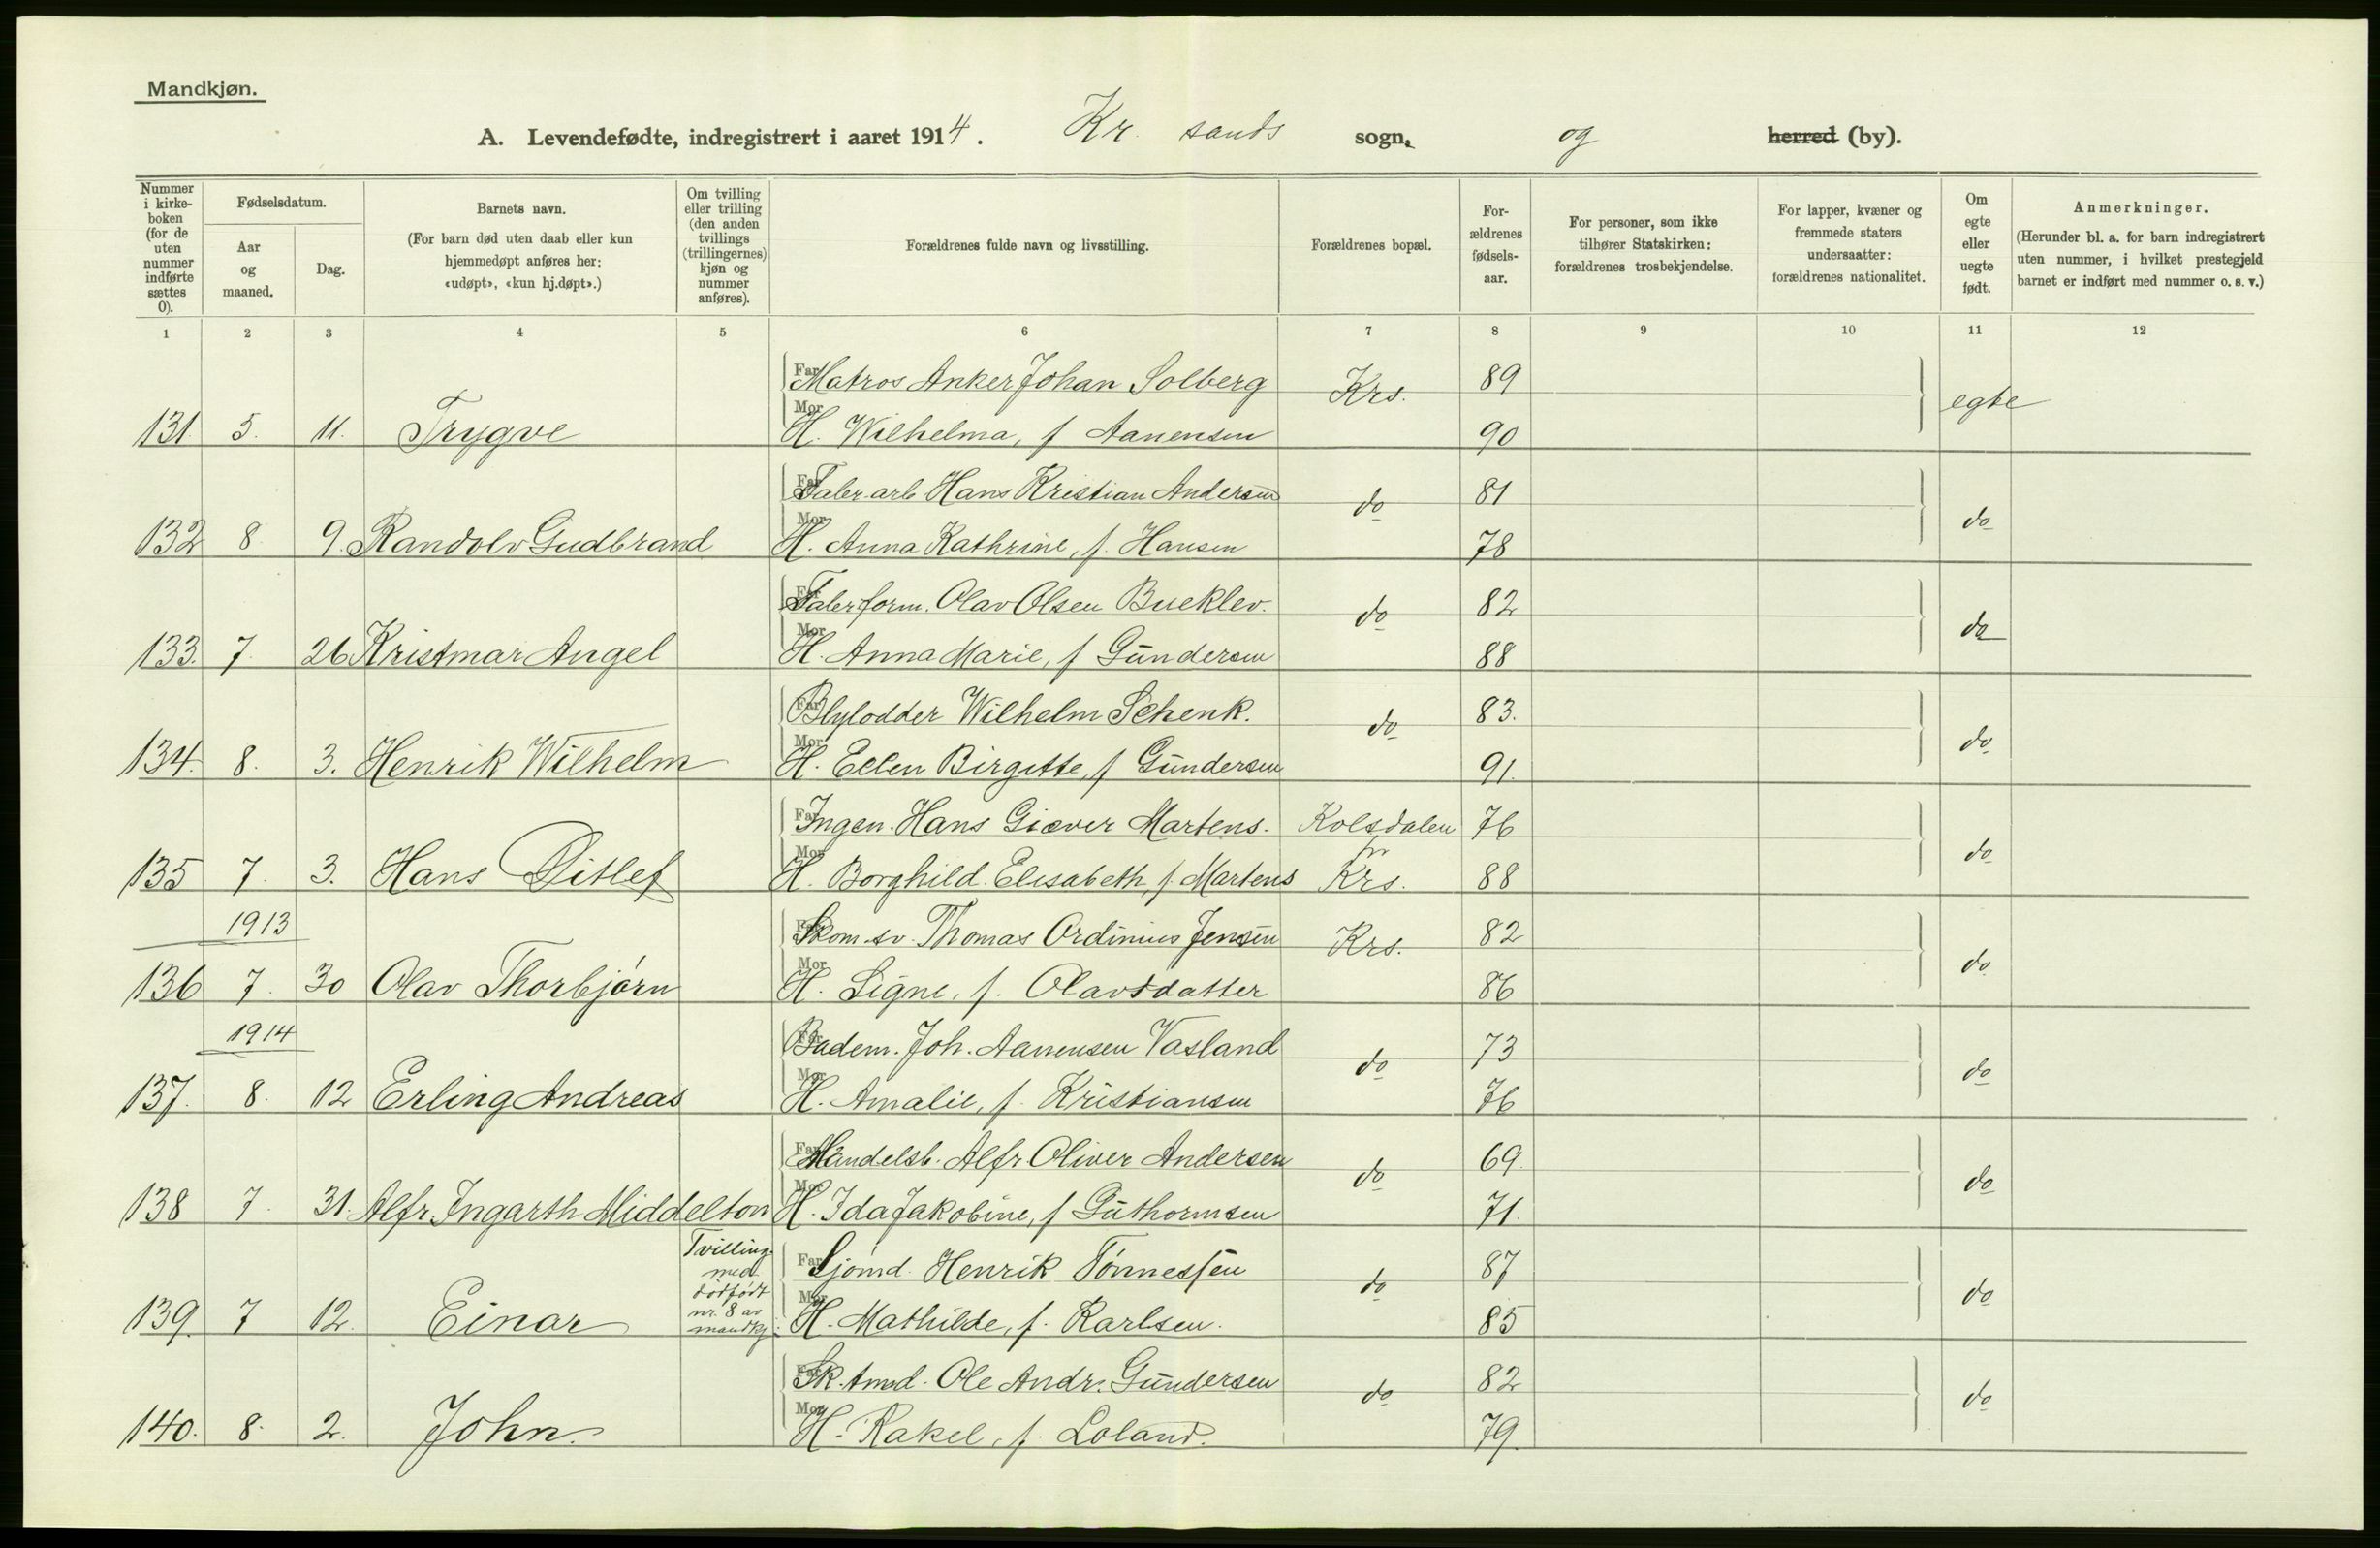 Mandkjøn.
A. Levendefødte, indregistrert i aaret 1914. Kr. sands sogn, og herred (by).
Nummer i kirke-boken (for de uten nummer indførte sættes 0).
Fødselsdatum.
Aar og maaned.
Dag.
Barnets navn.
(For barn død uten daab eller kun hjemmedøpt anføres her: «udøpt», «kun hj.døpt».)
Om tvilling eller trilling (den anden tvillings (trillingernes) kjøn og nummer anføres).
Forældrenes fulde navn og livsstilling.
Forældrenes bopæl.
For-ældrenes fødsels-aar.
For personer, som ikke tilhører Statskirken: forældrenes trosbekjendelse.
For lapper, kvæner og fremmede staters undersaatter: forældrenes nationalitet.
Om egte eller uegte født.
Anmerkninger.
(Herunder bl. a. for barn indregistrert uten nummer, i hvilket prestegjeld barnet er indført med nummer o. s. v.)
1 2 3 4 5 6 7 8 9 10 11 12
Far Matros Anker Johan Solberg Krs. 89 egte
131. 5. 11. Trygve Mor H. Wilhelma, f Aanensen 90
Far Faber.arb Hans Kristian Andersen do 81 do
132 8. 9. Randolv Gudbrand Mor H. Anna Kathrine, f. Hansen 78
Far Faber form. Olav Olsen Bueklev. do 82 do
133. 7. 26 Kristmar Angel Mor H. Anna Marie, f Gundersen 88
Far Blylodder Wilhelm Schenk. do 83. do
134. 8. 3. Henrik Wilhelm Mor H. Ellen Birgitte, f Gundersen 91.
Far Ingen. Hans Giæver Martens. Kolsdalen 76 do
135 7. 3. Hans Ditlef Mor H. Borghild Elisabeth, f. Martens pr Krs. 88
1913
Far Skom.sv. Thomas Ordinius Jensen Krs. 82 do
136 7. 30 Olav Thorbjørn Mor H. Signe, f. Olavsdatter 86
1914
Far Badem. Joh. Aanensen Vasland do 73 do
137. 8. 12 Erling Andreas Mor H. Amalie, f. Kristiansen 76
Far Handelsb. Alfr. Oliver Andersen do 69. do
138 7. 31. Alfr. Ingarth Middelton Mor H. Ida Jakobine, f Guthormsen 71.
Tvilling med dødfødt nr. 8 av mandkj.
Far Sjømd. Henrik Tønnessen do 87 do
139. 7 12. Einar Mor H. Mathilde, f. Karlsen. 85
Far Sk.tmd. Ole Andr. Gundersen do 82 do
140. 8. 2. John. Mor H. Rakel, f. Loland. 79.